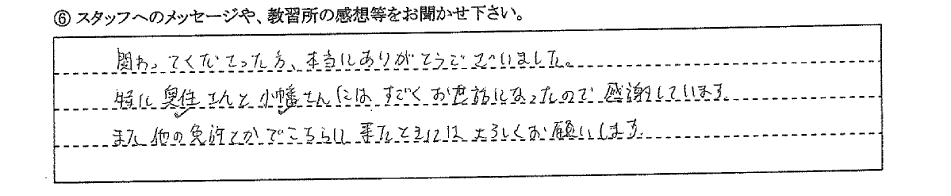 ⑥ スタッフへのメッセージや、教習所の感想等をお聞かせ下さい。
関わってくださった方、本当にありがとうございました。
特に奥住さんと小幡さんにはすごくお世話になったので感謝しています
また他の免許とかでこちらに来たときにはよろしくお願いします